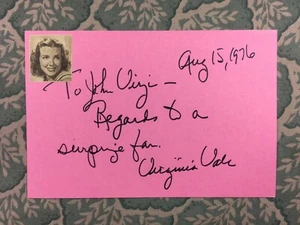 Aug 15, 1976
To John Virzi —
Regards to a
surprize fan.
Virginia Vale